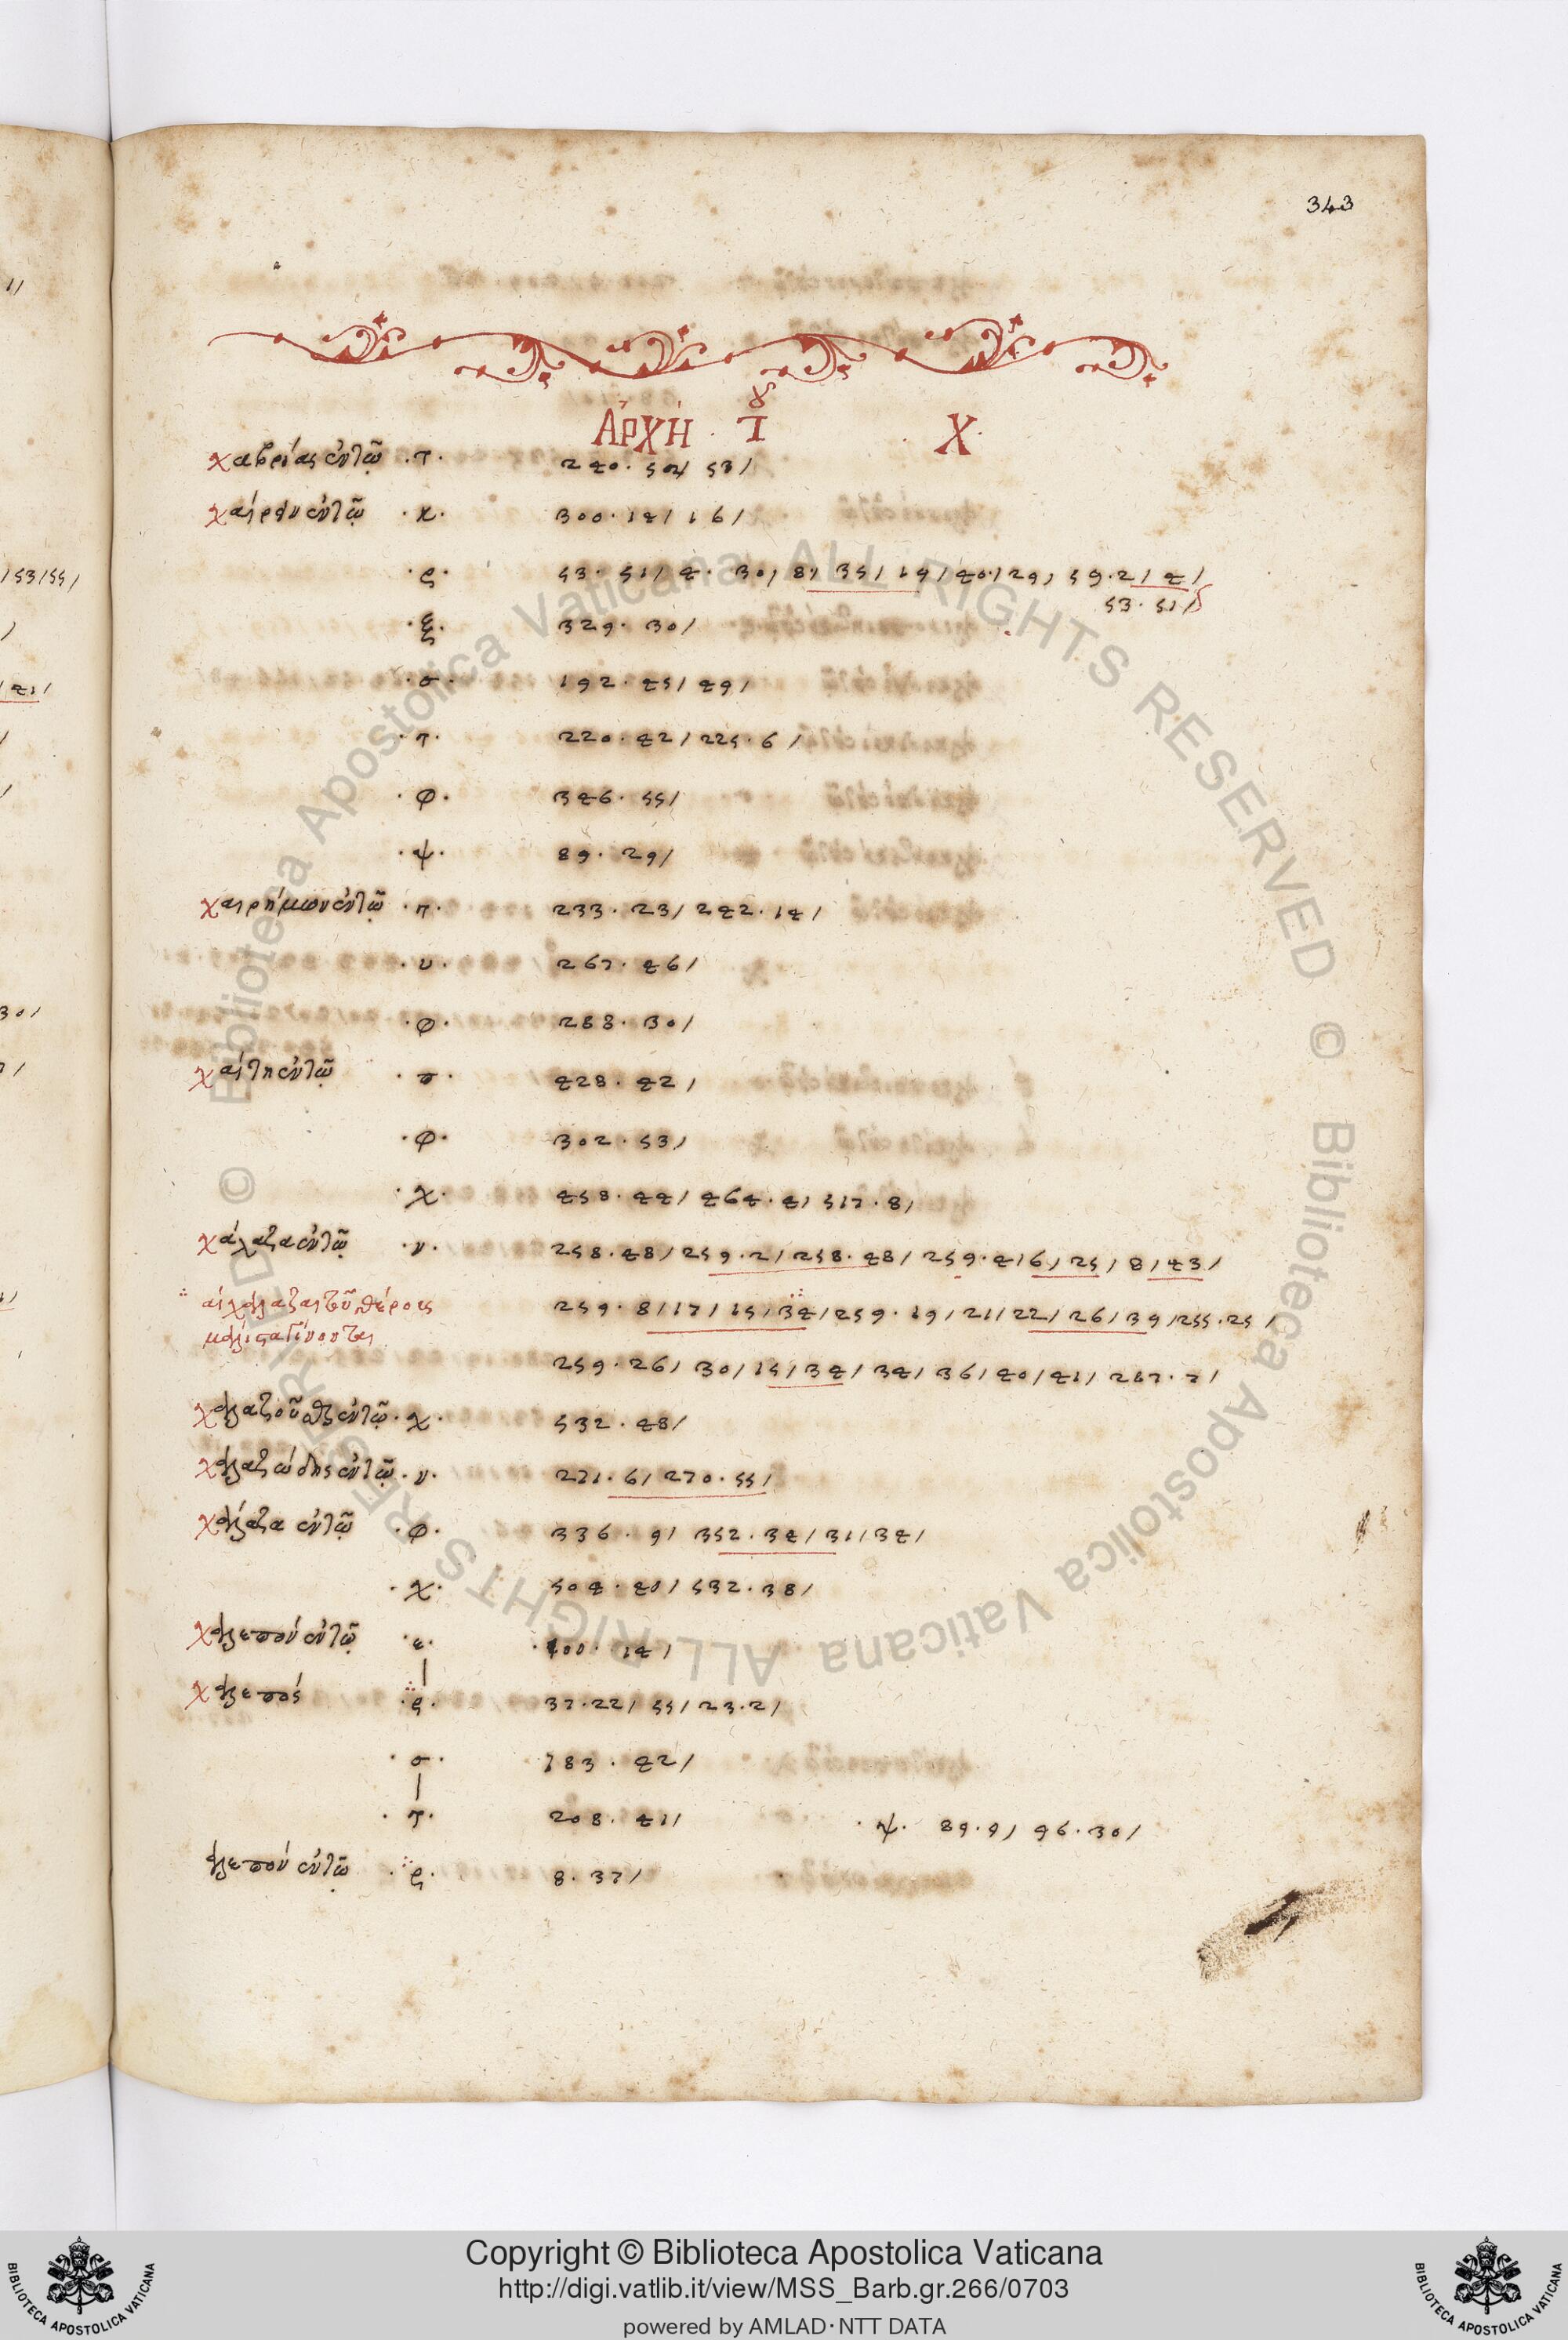 343
ἈΡΧῊ · τοῦ Χ ·
χαβρίας ἐν τῷ · τ · 240 · 50/ 53/
χαίρειν ἐν τῷ · κ · 300 · 14/ 16/
· ρ · 53 · 51/ 4 · 30/ 8/ 35/ 19/ 40/ 29/ 59 · 2/ 4/
53 · 51/
· ξ · 329 · 30/
· σ · 192 · 45/ 49/
· τ · 220 · 42/ 225 · 6/
· φ · 346 · 55/
· ψ · 89 · 29/
χαιρήμων ἐν τῷ · π · 233 · 23/ 242 · 14/
· υ · 267 · 46/
· φ · 288 · 30/
χαίτη ἐν τῷ · σ · 428 · 42/
· φ · 302 · 53/
· χ · 458 · 44/ 464 · 4/ 517 · 8/
χάλαζα ἐν τῷ · ν · 258 · 48/ 259 · 2/ 258 · 48/ 259 · 4/ 6/ 25/ 8/ 43/
αἱ χάλαζαι τοῦ θέρους 259 · 8/ 17/ 15/ 34/ 259 · 19/ 21/ 22/ 26/ 39/ 255 · 25/
μάλιστα γίνονται
259 · 26/ 30/ 15/ 34/ 34/ 36/ 40/ 41/ 267 · 7/
χαλαζοῦσθαι ἐν τῷ · χ · 532 · 48/
χαλαζώδης ἐν τῷ · ν · 271 · 6/ 270 · 55/
χάλαζα ἐν τῷ · φ · 336 · 9/ 352 · 34/ 31/ 34/
· χ · 504 · 40/ 532 · 38/
χαλεπόν ἐν τῷ · ε · 400 · 14/
χαλεπός · ρ · 37 · 22/ 55/ 23 · 2/
· σ · 183 · 42/
· τ · 208 · 41/ · ψ · 89 · 9/ 96 · 30/
αλεπόν ἐν τῷ · ρ · 8 · 37/
Copyright © Biblioteca Apostolica Vaticana
http://digi.vatlib.it/view/MSS_Barb.gr.266/0703
powered by AMLAD·NTT DATA